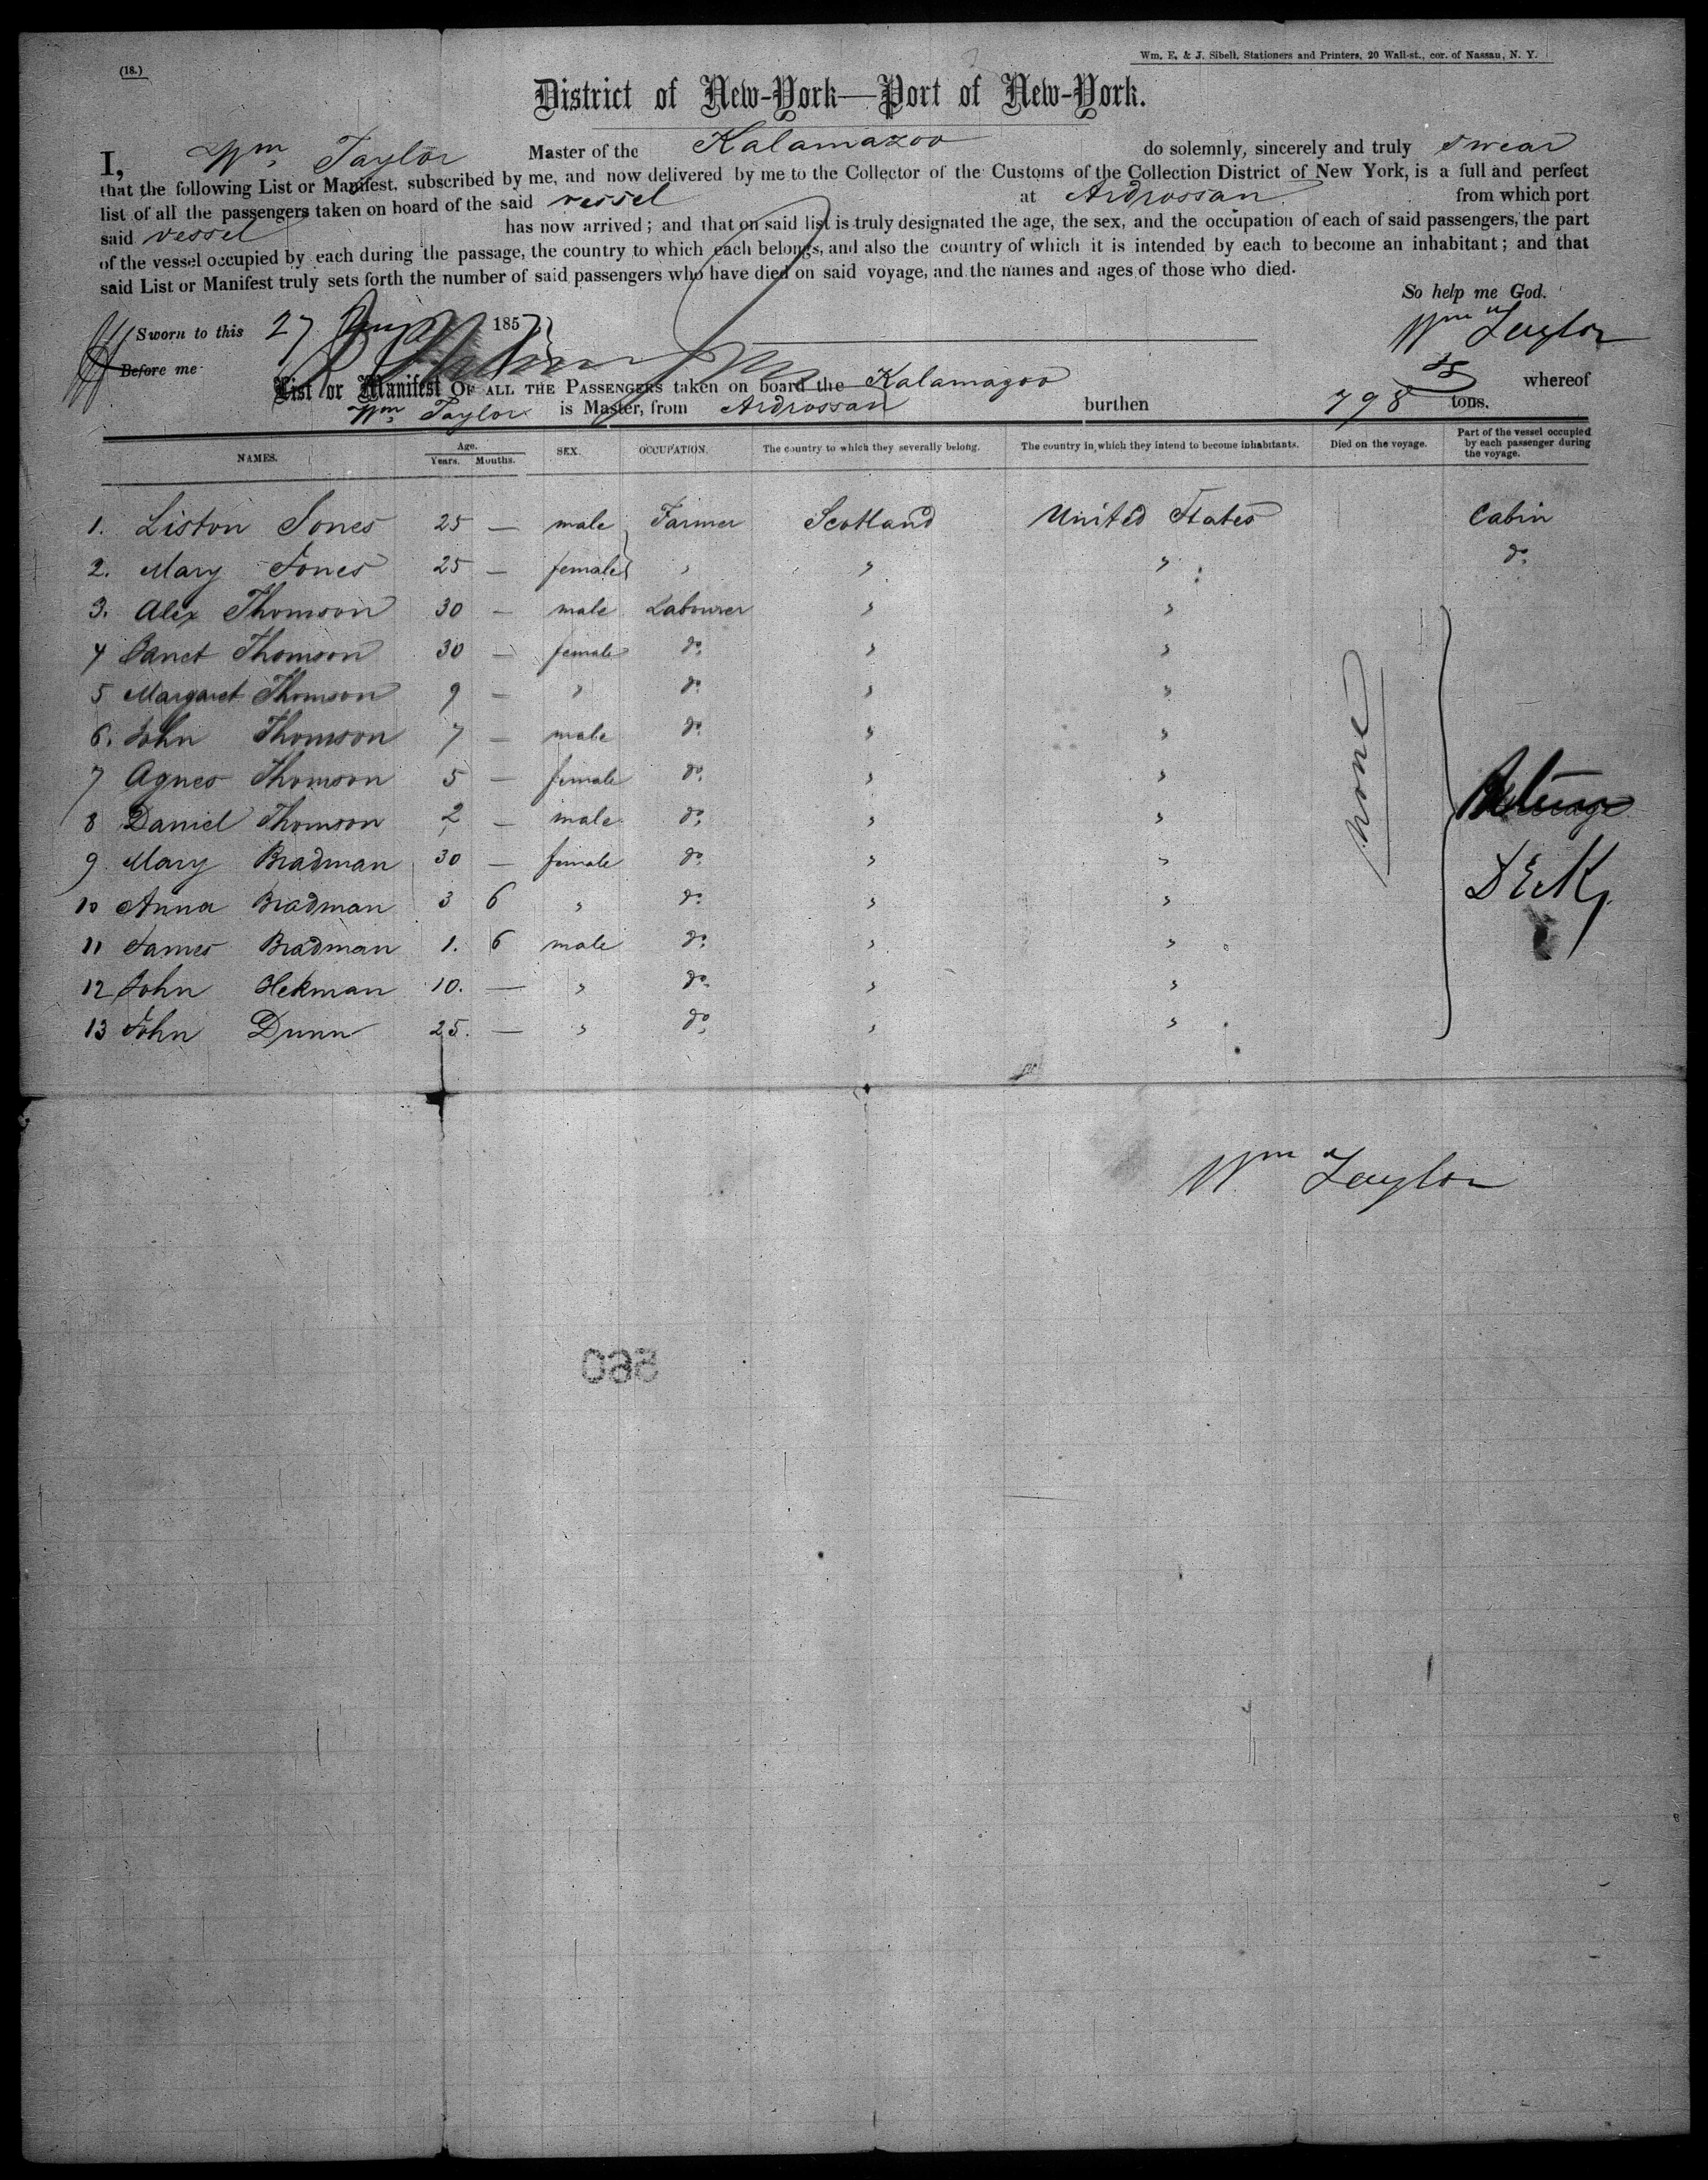 (18.)
Wm. E. & J. Sibell, Stationers and Printers, 20 Wall-st., cor. of Nassau, N. Y.
District of New-York—Port of New-York.
I, Wm Taylor Master of the Kalamazoo do solemnly, sincerely and truly swear
that the following List or Manifest, subscribed by me, and now delivered by me to the Collector of the Customs of the Collection District of New York, is a full and perfect
list of all the passengers taken on board of the said vessel at Ardrossan from which port
said vessel has now arrived; and that on said list is truly designated the age, the sex, and the occupation of each of said passengers, the part
of the vessel occupied by each during the passage, the country to which each belongs, and also the country of which it is intended by each to become an inhabitant; and that
said List or Manifest truly sets forth the number of said passengers who have died on said voyage, and the names and ages of those who died.
So help me God.
Sworn to this 27 1857
Wm Taylor
Before me
List or Manifest OF ALL THE PASSENGERS taken on board the Kalamazoo whereof
Wm Taylor is Master, from Ardrossan burthen 798 tons.
NAMES. Age. Years. Months. SEX. OCCUPATION. The country to which they severally belong. The country in which they intend to become inhabitants. Died on the voyage. Part of the vessel occupied by each passenger during the voyage.
1. Liston Jones 25 — male Farmer Scotland United States Cabin
2. Mary Jones 25 — female " " " do.
3. Alex Thomson 30 — male Labourer " "
4 Janet Thomson 30 — female do. " "
5 Margaret Thomson 9 — " do. " "
6. John Thomson 7 — male do. " "
7 Agnes Thomson 5 — female do. " "
8 Daniel Thomson 2 — male do. " "
9 Mary Bradman 30 — female do. " "
10 Anna Bradman 3 6 " do. " "
11 James Bradman 1. 6 male do. " "
12 John Hekman 10. — " do. " "
13 John Dunn 25. — " do. " "
none
Wm Taylor
560